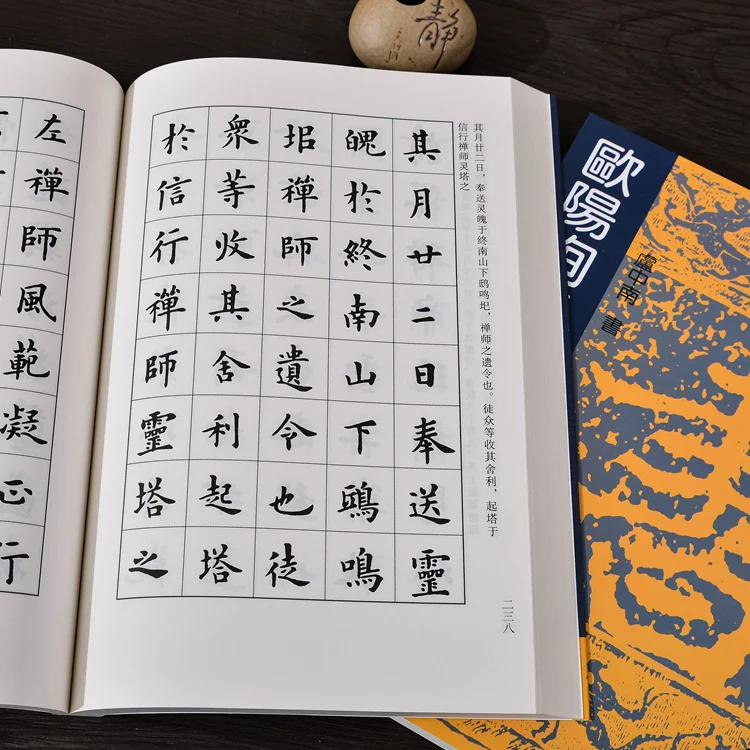 静
其月廿二日，奉送灵魄于终南山下鸱鸣，禅师之遗令也。徒众等收其舍利，起塔于
信行禅师灵塔之
其月廿二日奉送靈
魄於終南山下鴟鳴
禪師之遺令也徒
衆等收其舍利起塔
於信行禪師靈塔之
二三八
左禪師風範凝正行
歐陽
盧中南 書